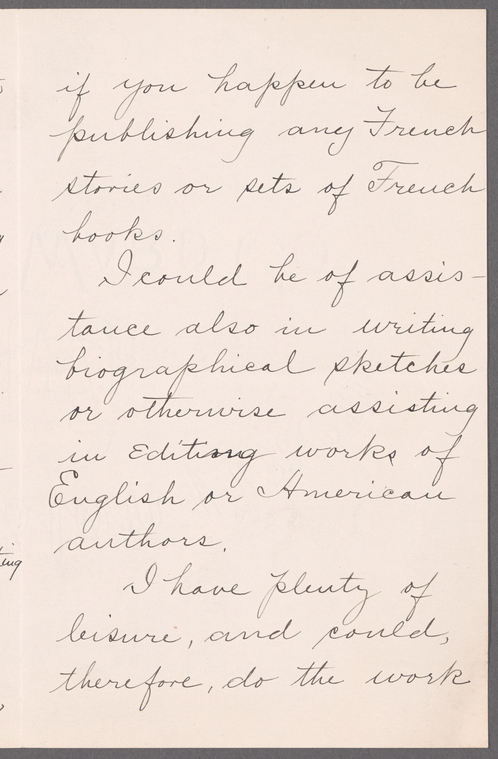 if you happen to be
publishing any French
stories or sets of French
books.
I could be of assis-
tance also in writing
biographical sketches
or otherwise assisting
in editing works of
English or American
authors.
I have plenty of
leisure, and could,
therefore, do the work
ting